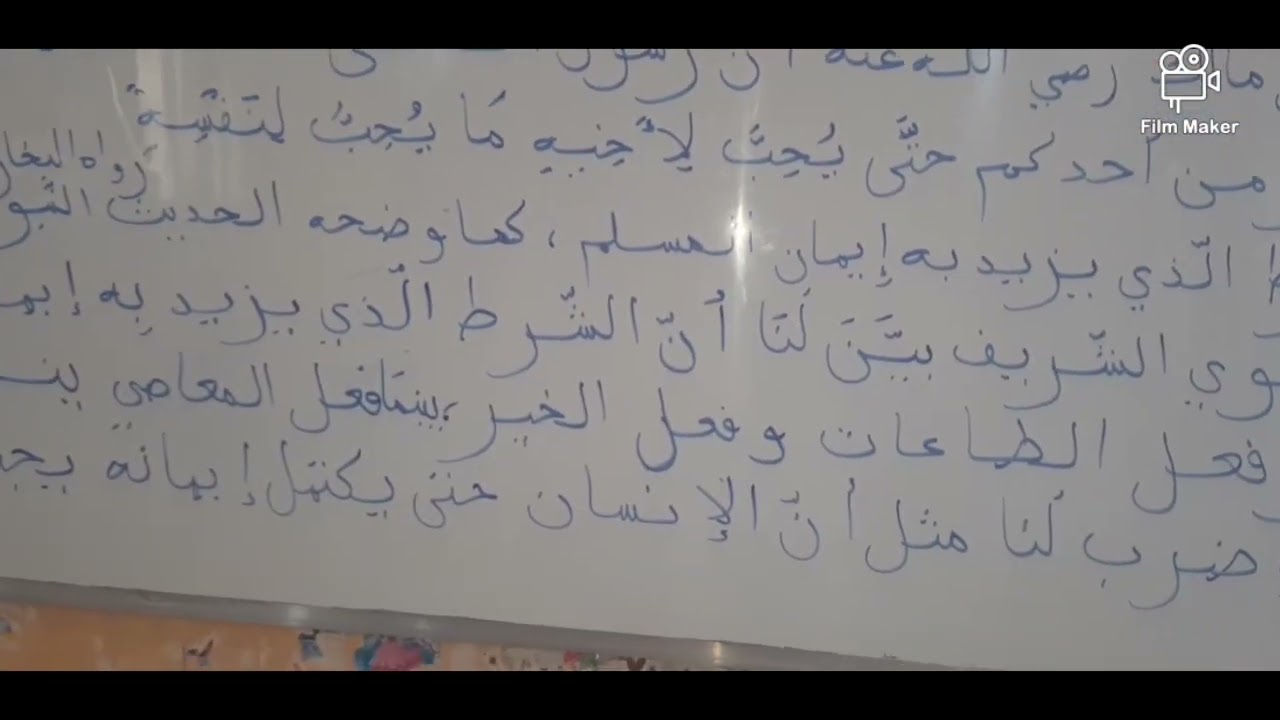 مالك رضي الله عنه أن رسول
Film Maker
من أحدكم حتَّى يُحِبَّ لِأَخِيهِ مَا يُحِبُّ لِنَفْسِهِ
رواه البخا
الّذي يزيد به إيمان المسلم، كما وضحه الحديث النّبو
وي الشّريف بيَّنَ لَنَا أنّ الشّرط الّذي يزيد بِه إيم
فعل الطاعات وفعل الخير، بينمَا فعل المعاصي ينـ
ضرب لَنا مثل أنَّ الإنسان حتى يكتمل إيمانه يجـ